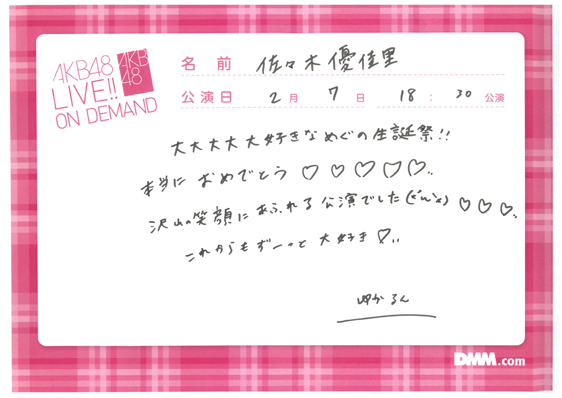 AKB48
LIVE!!
ON DEMAND
AKB
48
名前 佐々木優佳里
公演日 2月7日 18:30公演
大大大大大好きなめぐの生誕祭!!
本当に おめでとう ♡♡♡♡♡..
沢山の笑顔にあふれる公演でした ♡♡♡.
これからもずーっと大好き♡..
ゆかるん
DMM.com